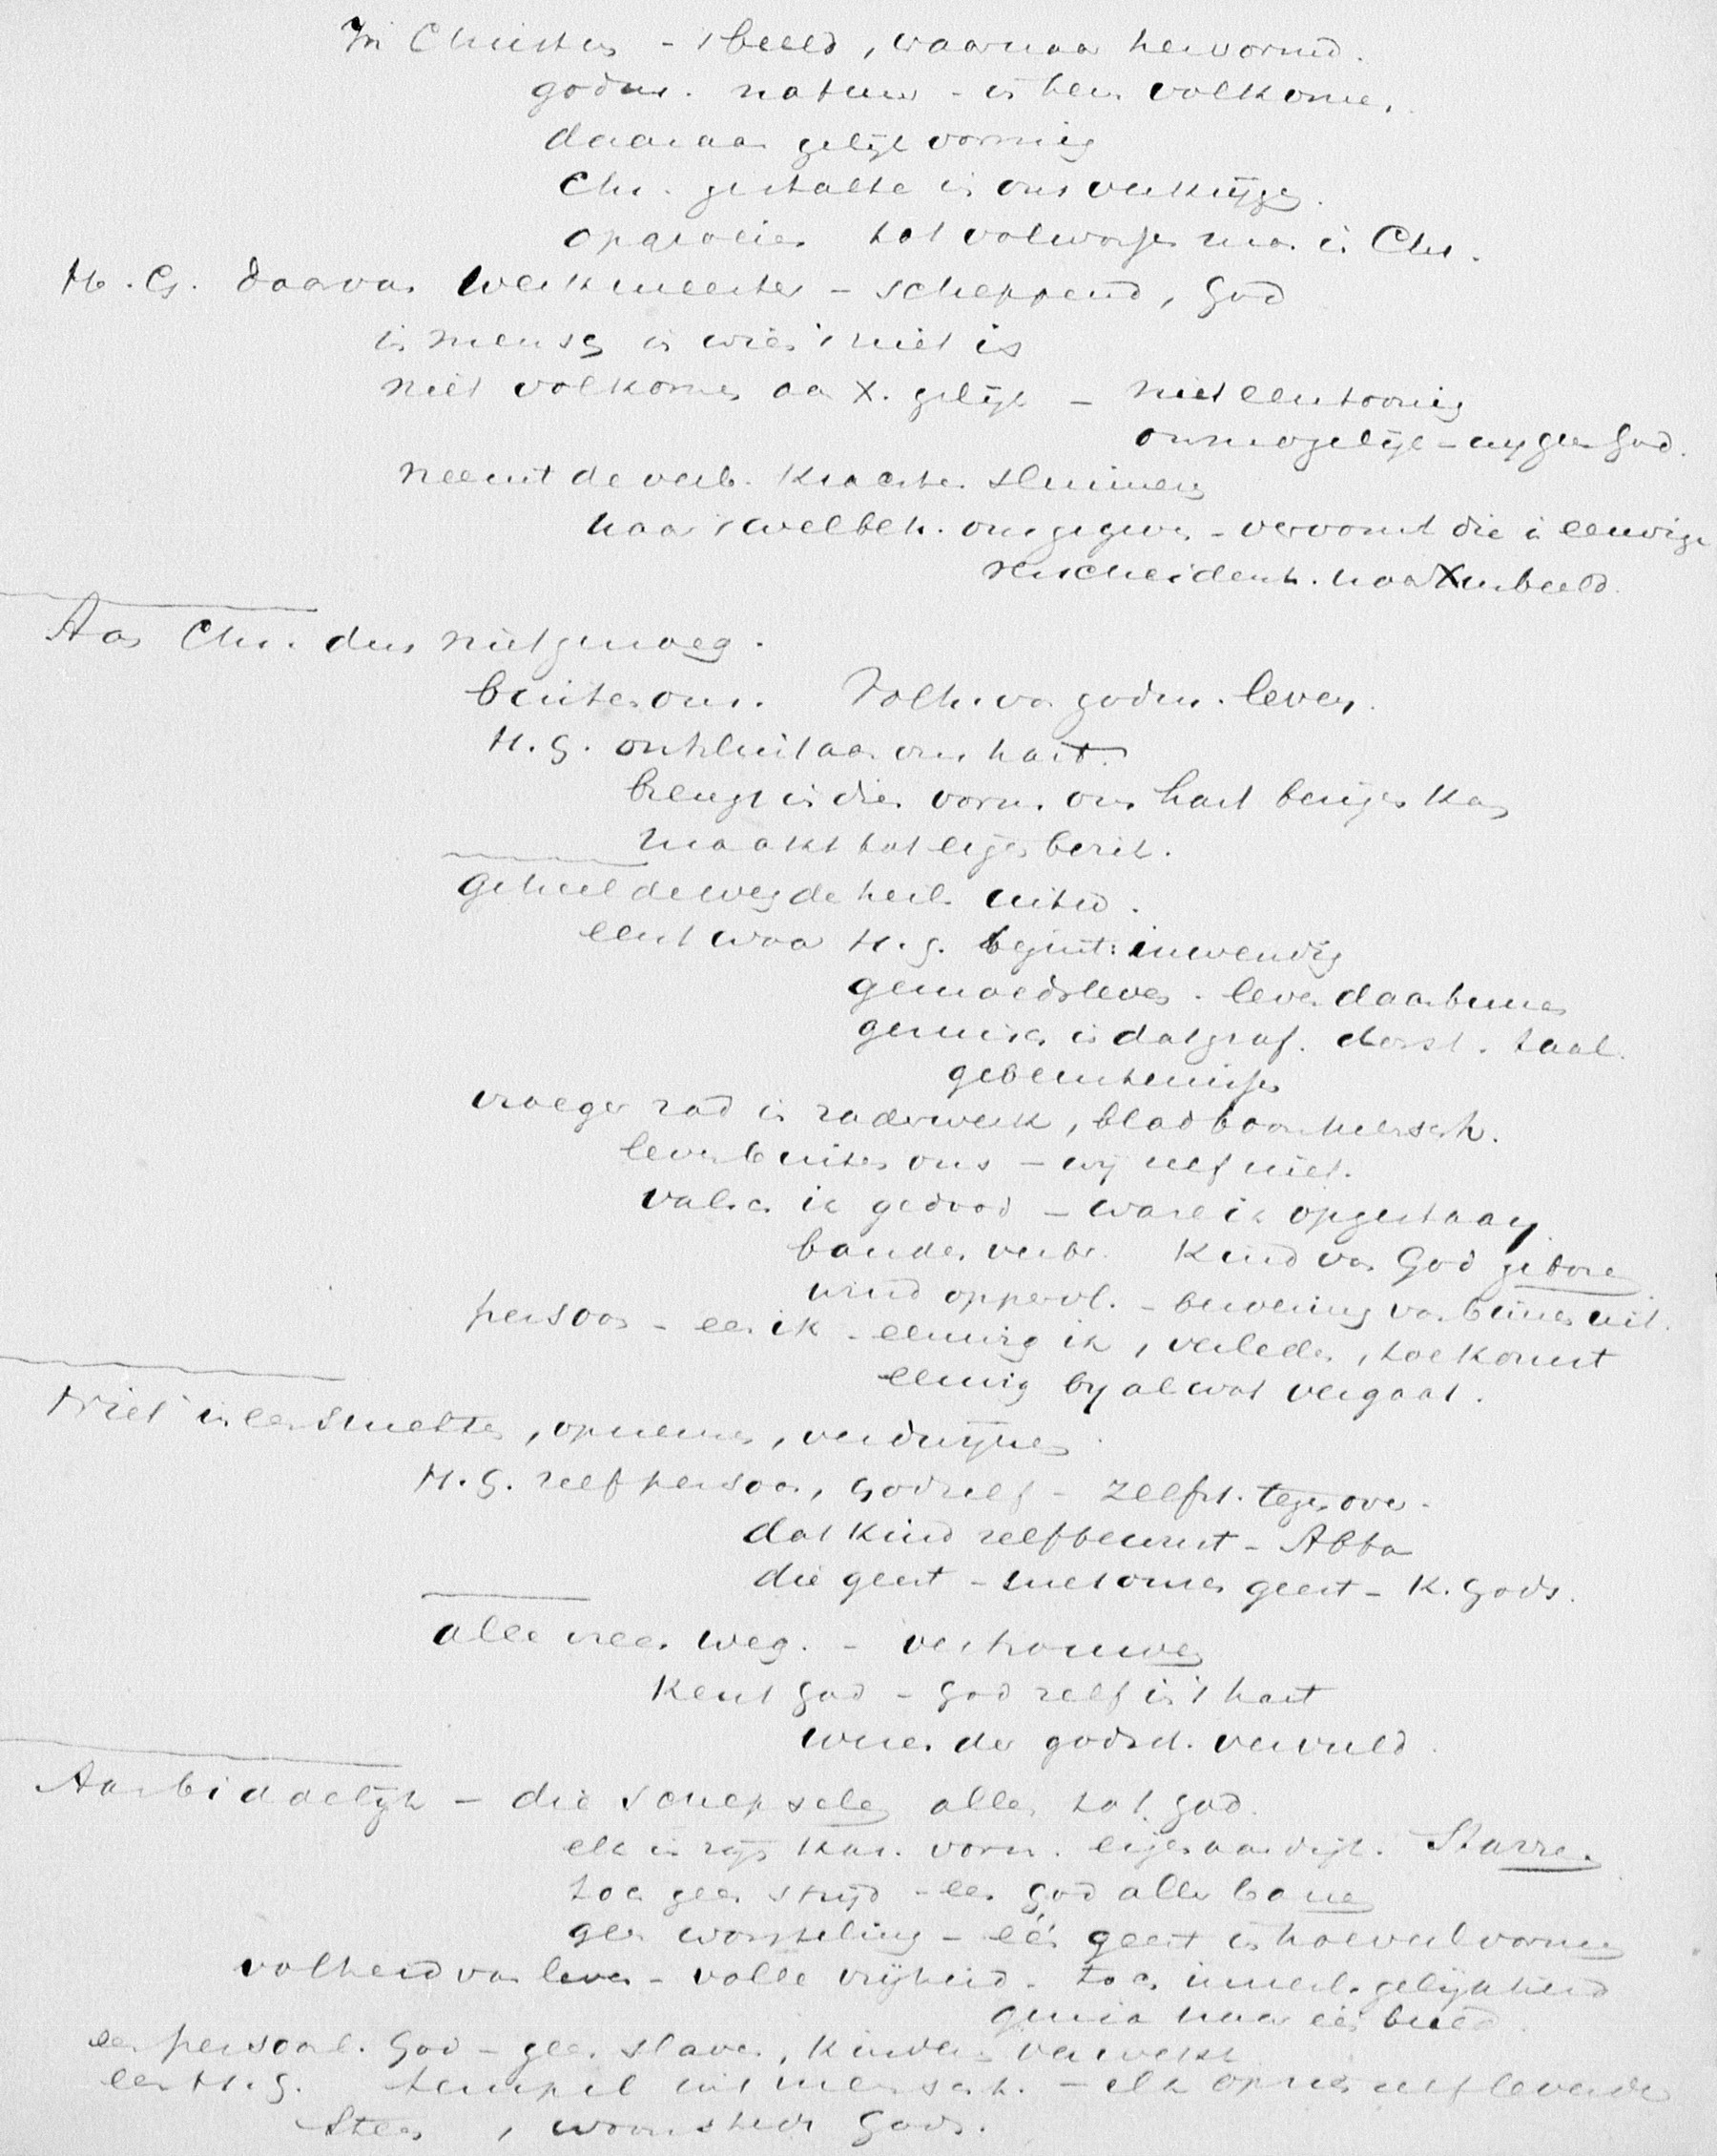 In Christus - 't beeld, waarnaar hervormd.
godm. natuur - in hem volkomen.
daaraan gelijkvormig
Chr. gestalte in ons verkrijgen.
opgroeien tot volwassen man in Chr.
H. G. daarvan werkmeester - scheppend, God
in mensch in wien 't niet is
niet volkomen aan X. gelijk - niet eentoonig
onmogelijk - wij geen God.
neemt de verb. krachten sluimerig
naar 't welbeh. ons gegeven - vervormt die in eeuwige
verscheidenh. naar Xus beeld.
Aan Chr. dus niet genoeg.
buiten ons. Tolk van godm. leven.
H. G. ontsluit aan ons hart.
brengt in dien vorm. ons hart bergen kan
maakt tot eigen bezit.
Geheel de weg de heil. uitw.
eerst waar H. G. begint: inwendig
gemoedsleven - leven daarbinnen
geruisch in dat graf. dorst. taal.
gebeurtenissen
vroeger rad in raderwerk, blad boom mensch.
leven buiten ons - wij zelf niet.
valsch ik gedood - ware ik opgestaan
banden verbr. Kind van God geboren
wind opperol. - beweging van binnen uit.
persoon - een ik - eeuwig ik, verleden, toekomst
eeuwig bij al wat vergaat.
Niet ineensmelten, opnemen, verdwijnen
H. G. zelf persoon, God zelf - zelfst. tegenover.
dat kind zelfbewust - Abba
die geest - met onzen geest - K. Gods.
alle vrees weg. - vertrouwen
Kent God - God zelf in 't hart
wezen der godsd. vervuld.
Aanbiddelijk - die schepselen allen tot God.
elk in zijn kar. vorm. eigenaardigh. Starren.
toch geen strijd - een God aller banen
geen worsteling - één geest in hoeveel vormen
volheid van leven - volle vrijheid - toch innerl. gelijkheid
naar één beeld.
een persoonl. God - geen slaven, kinderen verwekt
een H. G. tempel uit mensch. - elk op zich zelf levende
steen, woonstede Gods.